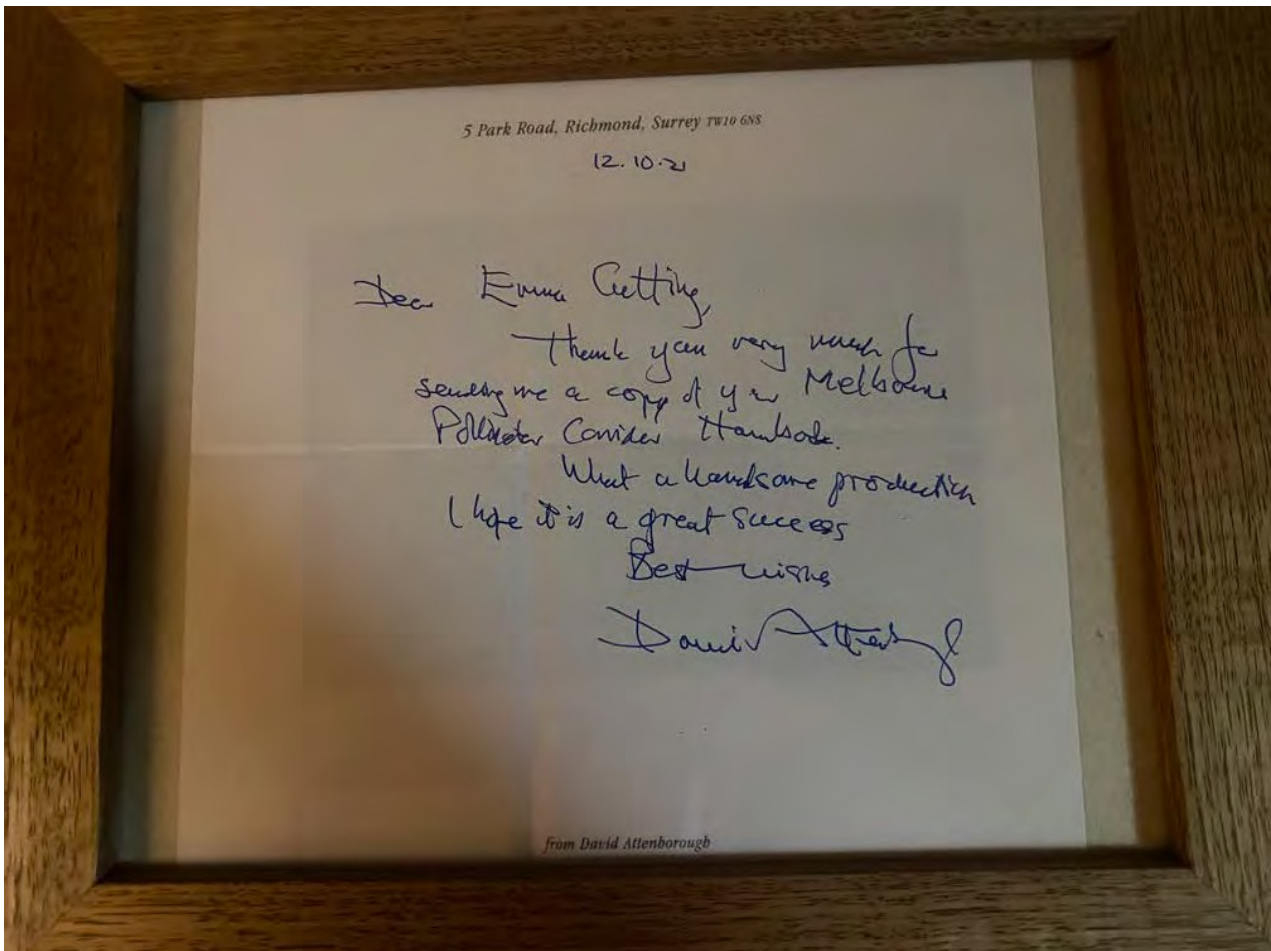 5 Park Road, Richmond, Surrey TW10 6NS
12.10.21
Dear Emma Cutting,
Thank you very much for
sending me a copy of your Melbourne
Pollinator Corridor Handbook.
What a handsome production
I hope it is a great success
Best wishes
David Attenborough
from David Attenborough